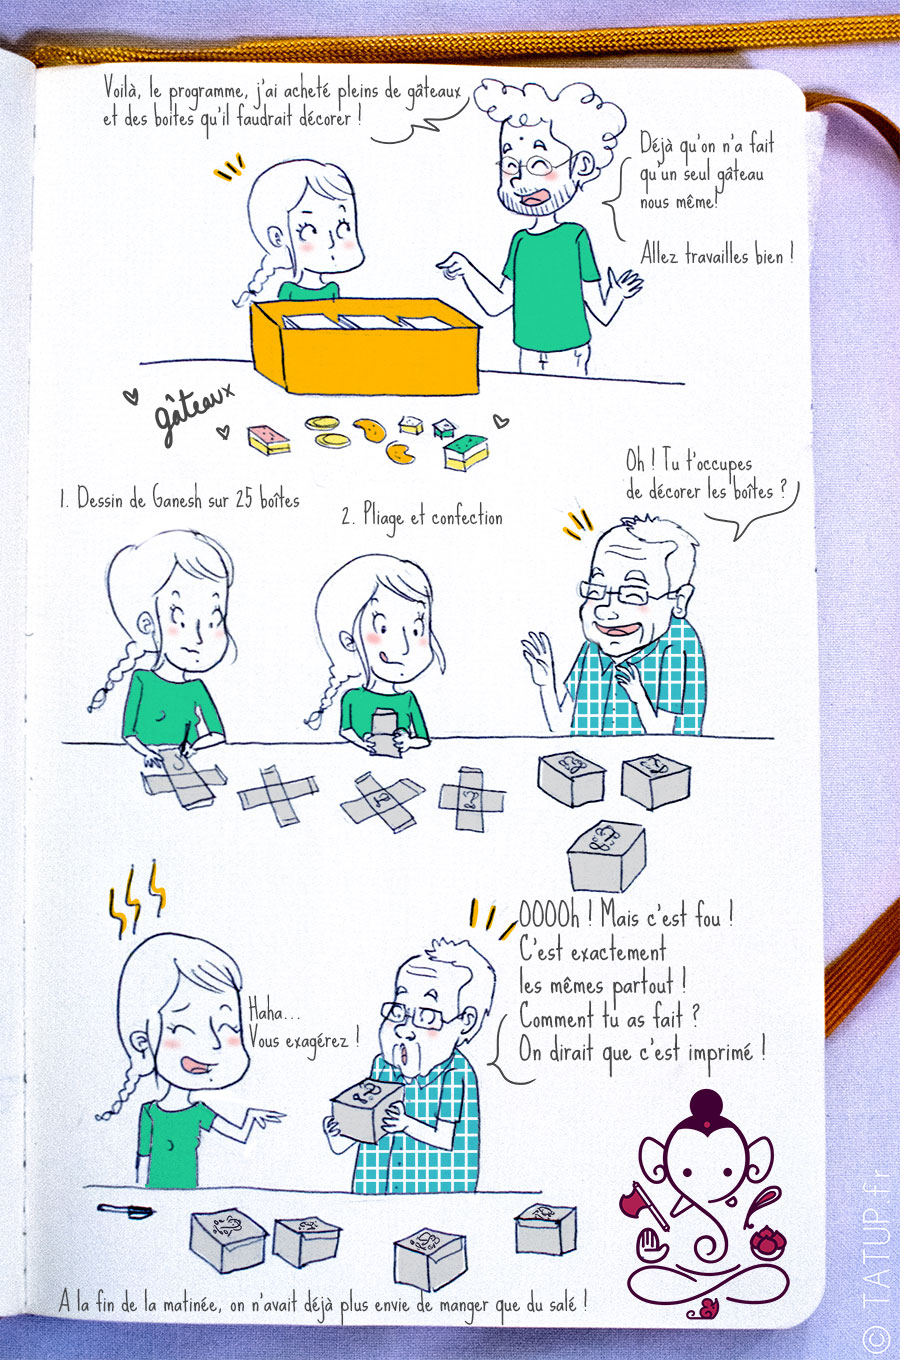 Voilà, le programme, j'ai acheté pleins de gâteaux
et des boites qu'il faudrait décorer !
Déjà qu'on n'a fait
qu'un seul gâteau
nous même!
Allez travailles bien !
gâteaux
Oh ! Tu t'occupes
de décorer les boîtes ?
1. Dessin de Ganesh sur 25 boîtes
2. Pliage et confection
OOOOh ! Mais c'est fou !
C'est exactement
les mêmes partout !
Comment tu as fait ?
On dirait que c'est imprimé !
Haha...
Vous exagérez !
A la fin de la matinée, on n'avait déjà plus envie de manger que du salé !
© TATUP.fr